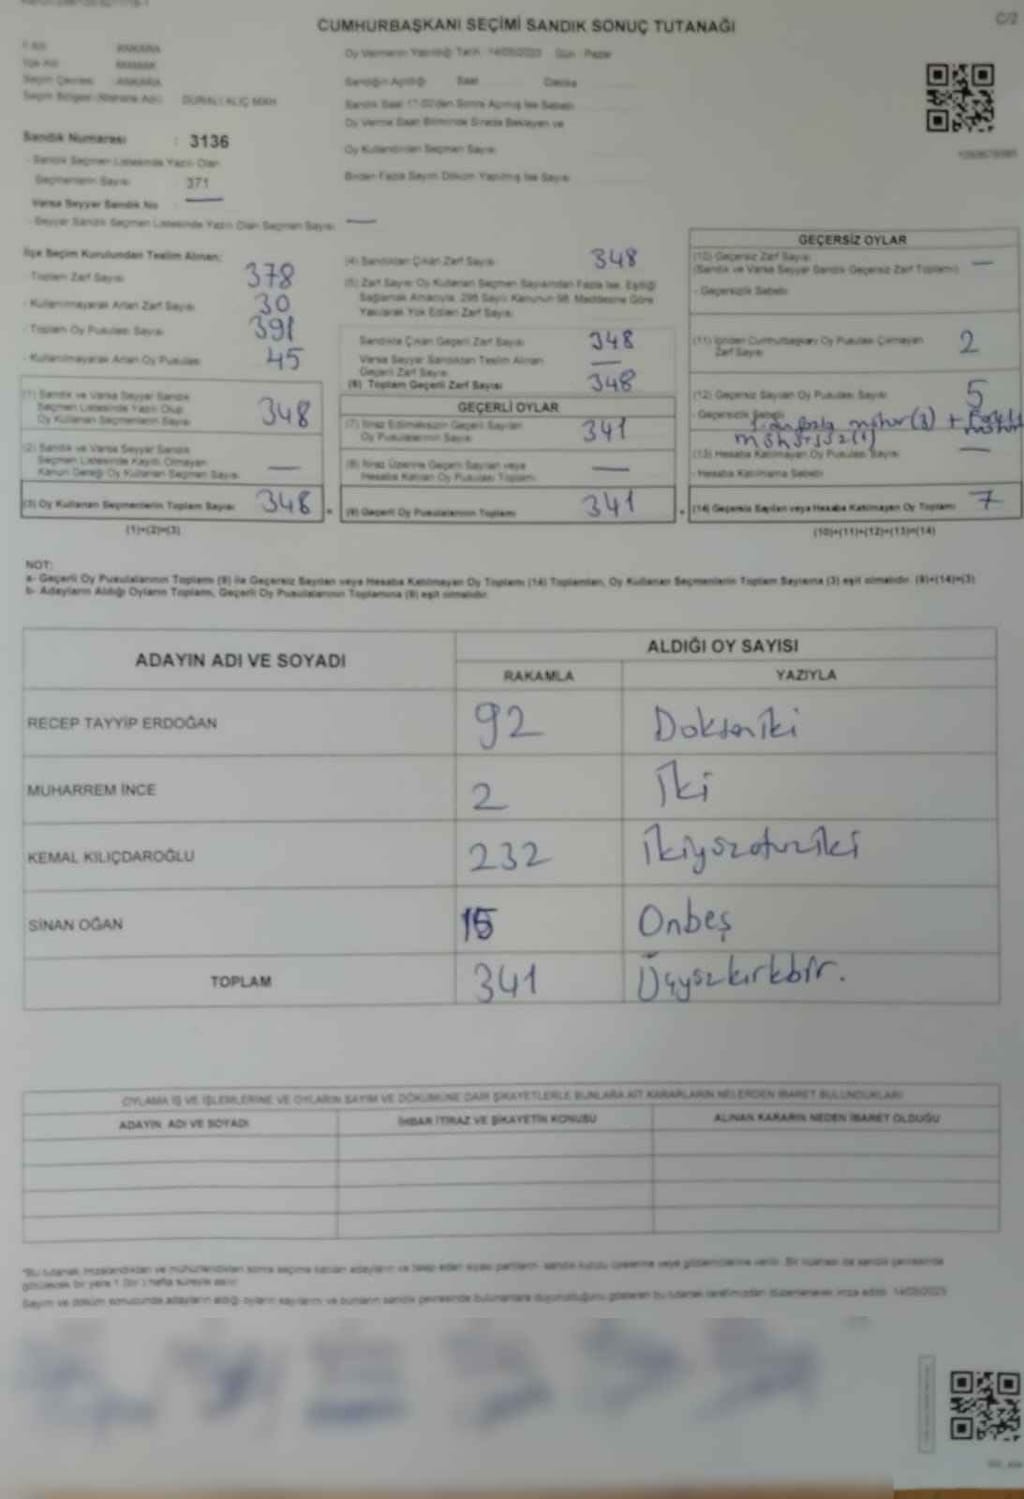 CUMHURBAŞKANI SEÇİMİ SANDIK SONUÇ TUTANAĞI
C/2
İl Adı ANKARA
İlçe Adı MAMAK
Seçim Çevresi ANKARA
Seçim Bölgesi (Mahalle Adı) DURALİ ALIÇ MAH
Oy Vermenin Yapıldığı Tarih 14/05/2023 Gün Pazar
Sandığın Açıldığı Saat Dakika
Sandık Saat 17.00'den Sonra Açılmış İse Sebebi
Oy Verme Saati Bitiminde Sırada Bekleyen ve
Oy Kullandırılan Seçmen Sayısı
Birden Fazla Sayım Döküm Yapılmış İse Sayısı
Sandık Numarası : 3136
- Sandık Seçmen Listesinde Yazılı Olan
Seçmenlerin Sayısı 371
Varsa Seyyar Sandık No —
- Seyyar Sandık Seçmen Listesinde Yazılı Olan Seçmen Sayısı —
İlçe Seçim Kurulundan Teslim Alınan:
- Toplam Zarf Sayısı 378
- Kullanılmayarak Artan Zarf Sayısı 30
- Toplam Oy Pusulası Sayısı 391
- Kullanılmayarak Artan Oy Pusulası 45
(1) Sandık ve Varsa Seyyar Sandık
Seçmen Listesinde Yazılı Olup
Oy Kullanan Seçmenlerin Sayısı 348
(2) Sandık ve Varsa Seyyar Sandık
Seçmen Listesinde Kayıtlı Olmayan
Kanun Gereği Oy Kullanan Seçmen Sayısı —
(3) Oy Kullanan Seçmenlerin Toplam Sayısı 348
(1)+(2)=(3)
(4) Sandıktan Çıkan Zarf Sayısı 348
(5) Zarf Sayısı Oy Kullanan Seçmen Sayısından Fazla İse, Eşitliği
Sağlamak Amacıyla, 298 Sayılı Kanunun 98. Maddesine Göre
Yakılarak Yok Edilen Zarf Sayısı
Sandıkta Çıkan Geçerli Zarf Sayısı 348
Varsa Seyyar Sandıktan Teslim Alınan
Geçerli Zarf Sayısı —
(6) Toplam Geçerli Zarf Sayısı 348
GEÇERLİ OYLAR
(7) İtiraz Edilmeksizin Geçerli Sayılan
Oy Pusulalarının Sayısı 341
(8) İtiraz Üzerine Geçerli Sayılan veya
Hesaba Katılan Oy Pusulası Toplamı —
(9) Geçerli Oy Pusulalarının Toplamı 341
GEÇERSİZ OYLAR
(10) Geçersiz Zarf Sayısı —
(Sandık ve Varsa Seyyar Sandık Geçersiz Zarf Toplamı)
- Geçersizlik Sebebi
(11) İçinden Cumhurbaşkanı Oy Pusulası Çıkmayan
Zarf Sayısı 2
(12) Geçersiz Sayılan Oy Pusulası Sayısı 5
- Geçersizlik Sebebi
(13) Hesaba Katılmayan Oy Pusulası Sayısı —
- Hesaba Katılmama Sebebi
(14) Geçersiz Sayılan veya Hesaba Katılmayan Oy Toplamı 7
(10)+(11)+(12)+(13)=(14)
NOT:
a- Geçerli Oy Pusulalarının Toplamı (9) ile Geçersiz Sayılan veya Hesaba Katılmayan Oy Toplamı (14) Toplamları, Oy Kullanan Seçmenlerin Toplam Sayısına (3) eşit olmalıdır. (9)+(14)=(3)
b- Adayların Aldığı Oyların Toplamı, Geçerli Oy Pusulalarının Toplamına (9) eşit olmalıdır.
ADAYIN ADI VE SOYADI
ALDIĞI OY SAYISI
RAKAMLA YAZIYLA
RECEP TAYYİP ERDOĞAN 92 Doksaniki
MUHARREM İNCE 2 İki
KEMAL KILIÇDAROĞLU 232 İkiyüzotuziki
SİNAN OĞAN 15 Onbeş
TOPLAM 341 Üçyüzkırkbir.
OYLAMA İŞ VE İŞLEMLERİNE VE OYLARIN SAYIM VE DÖKÜMÜNE DAİR ŞİKAYETLERLE BUNLARA AİT KARARLARIN NELERDEN İBARET BULUNDUKLARI
ADAYIN ADI VE SOYADI İHBAR İTİRAZ VE ŞİKAYETİN KONUSU ALINAN KARARIN NEDEN İBARET OLDUĞU